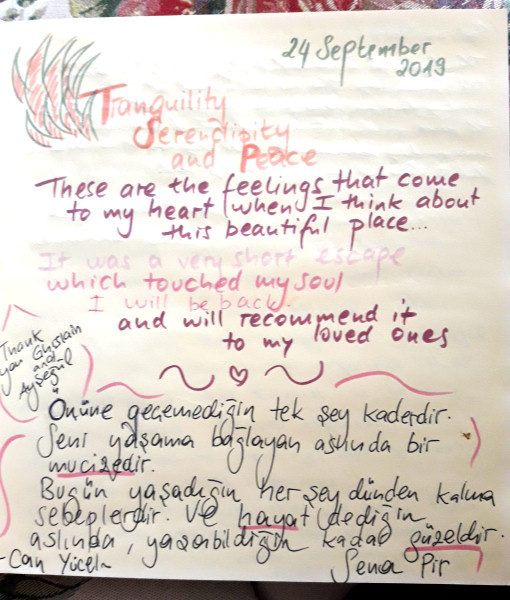 24 September
2019
Tranquility
Serendipity
and Peace
These are the feelings that come
to my heart when I think about
this beautiful place...
It was a very short escape
which touched my soul
I will be back.
and will recommend it
to my loved ones
Thank
you Ghislain
and
Ayşegül
Önüne geçemediğin tek şey kaderdir.
Seni yaşama bağlayan aslında bir
mucizedir.
Bugün yaşadığın her şey dünden kalma
sebeplerdir. Ve hayat dediğin
aslında, yaşabildiğin kadar güzeldir.
-Can Yücel-
Sena Pir